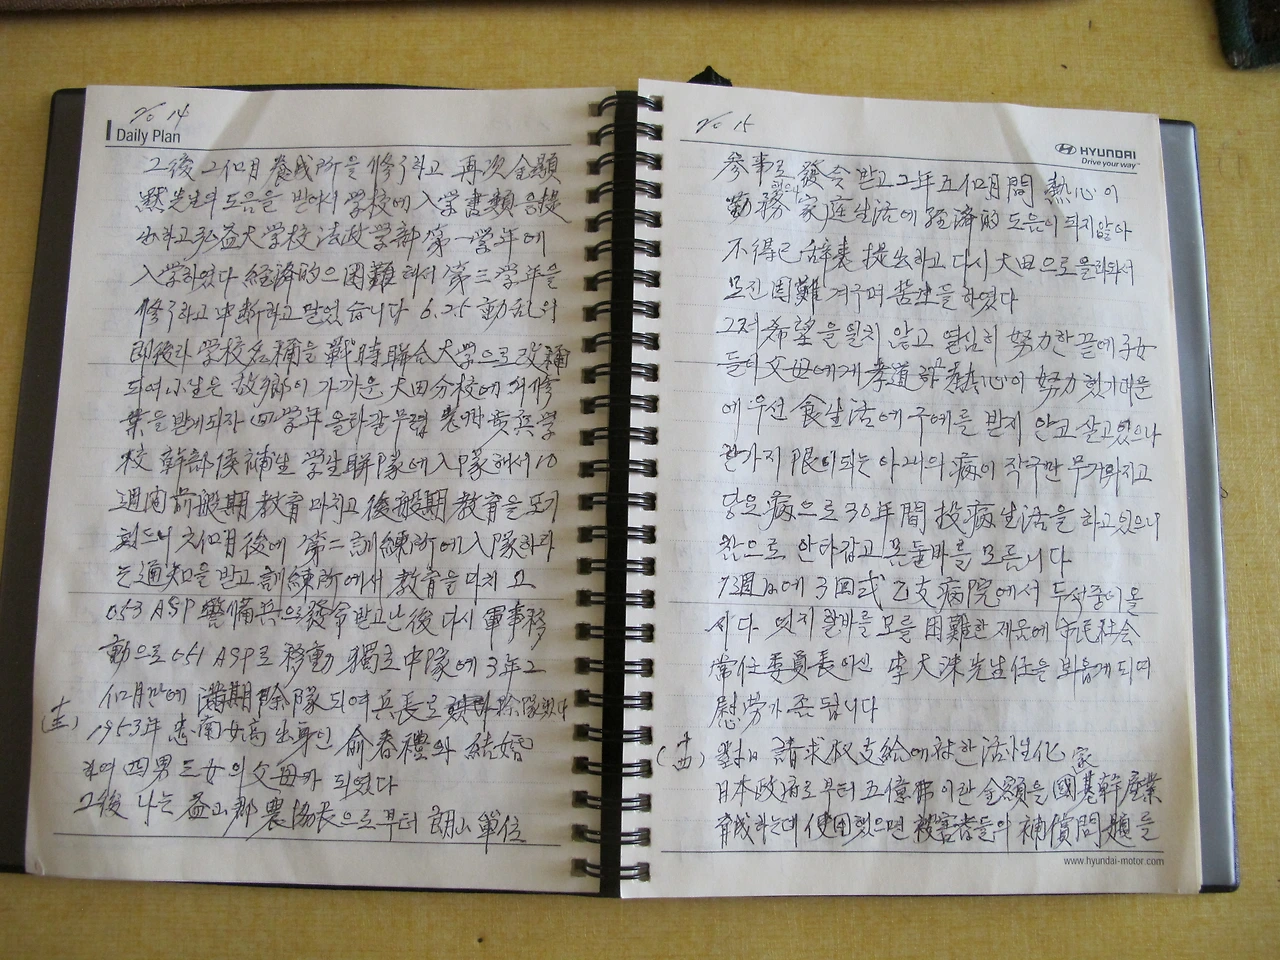 No 14
Daily Plan
그後 2個月 養成所을 修了하고 再次 金顯
黙先生의 도음을 받아서 学校에 入学書類을 提
出하고 弘益大学校 法政学部 第一学年에
入学하였다 経済的으 困難 해서 第三学年을
修了하고 中断하고 말었습니다 6.25 動乱의
即後라 学校名称을 戰時聯合大学으로 改称
되여 小生은 故郷이 가까운 大田分校에 修
業을 받게되자 四学年 올라갈 무렵 憲兵学
校 幹部侯補生 学生聯隊에 入隊해서 10
週間 前般期 教育 마치고 後般期 教育을
六個月後에 第二訓練所에 入隊하라
는 通知을 받고 訓練所에서 教育을 마치고
053 ASP 警備兵으로 發令받고 난 後 다시 軍事移
動으로 051 ASP로 移動 獨立中隊에 3年2
個月만에 満期除隊되여 兵長로 除隊했다
1953年 忠南女高 出身인 俞春禮와 結婚
하여 四男三女의 父母가 되였다
그後 나는 益山郡 農協長으로부터 朗山單位
No 15
HYUNDAI
Drive your way
参事로 發令 받고 2年五個月間 熱心이
勤務 했으나 家庭生活에 経済的 도음이 되지않아
不得已 辞表 提出하고 다시 大田으로 올라와서
모진 困難 겨구며 苦生들 하였다
그저 希望을 잃치 않고 열심히 努力한 끝에 子女
들더 父母에게 孝道 하고 熱心이 努力했기때문
에 우선 食生活에 구애를 받지 안고 살고있으나
한가지 恨이되는 아내의 病이 작구만 무거워지고
당요病으로 30年間 投病生活을 하고있으니
참으로 안타갑고 몸둘바를 모릅니다
1週日에 3回式 乙支病院에서 투석중이올
시다 엇지할바를 모를 困難한 제문에 市民社会
常任委員長이신 李大洙先生任을 뵈옵게 되여
慰労가 좀 됩니다
請求权 支給에 対한 活性化
日本政府로부터 五億弗이란 金額을 國基幹産業
育成하는데 使用했으면 被害者들의 補償問題를
www.hyundai-motor.com